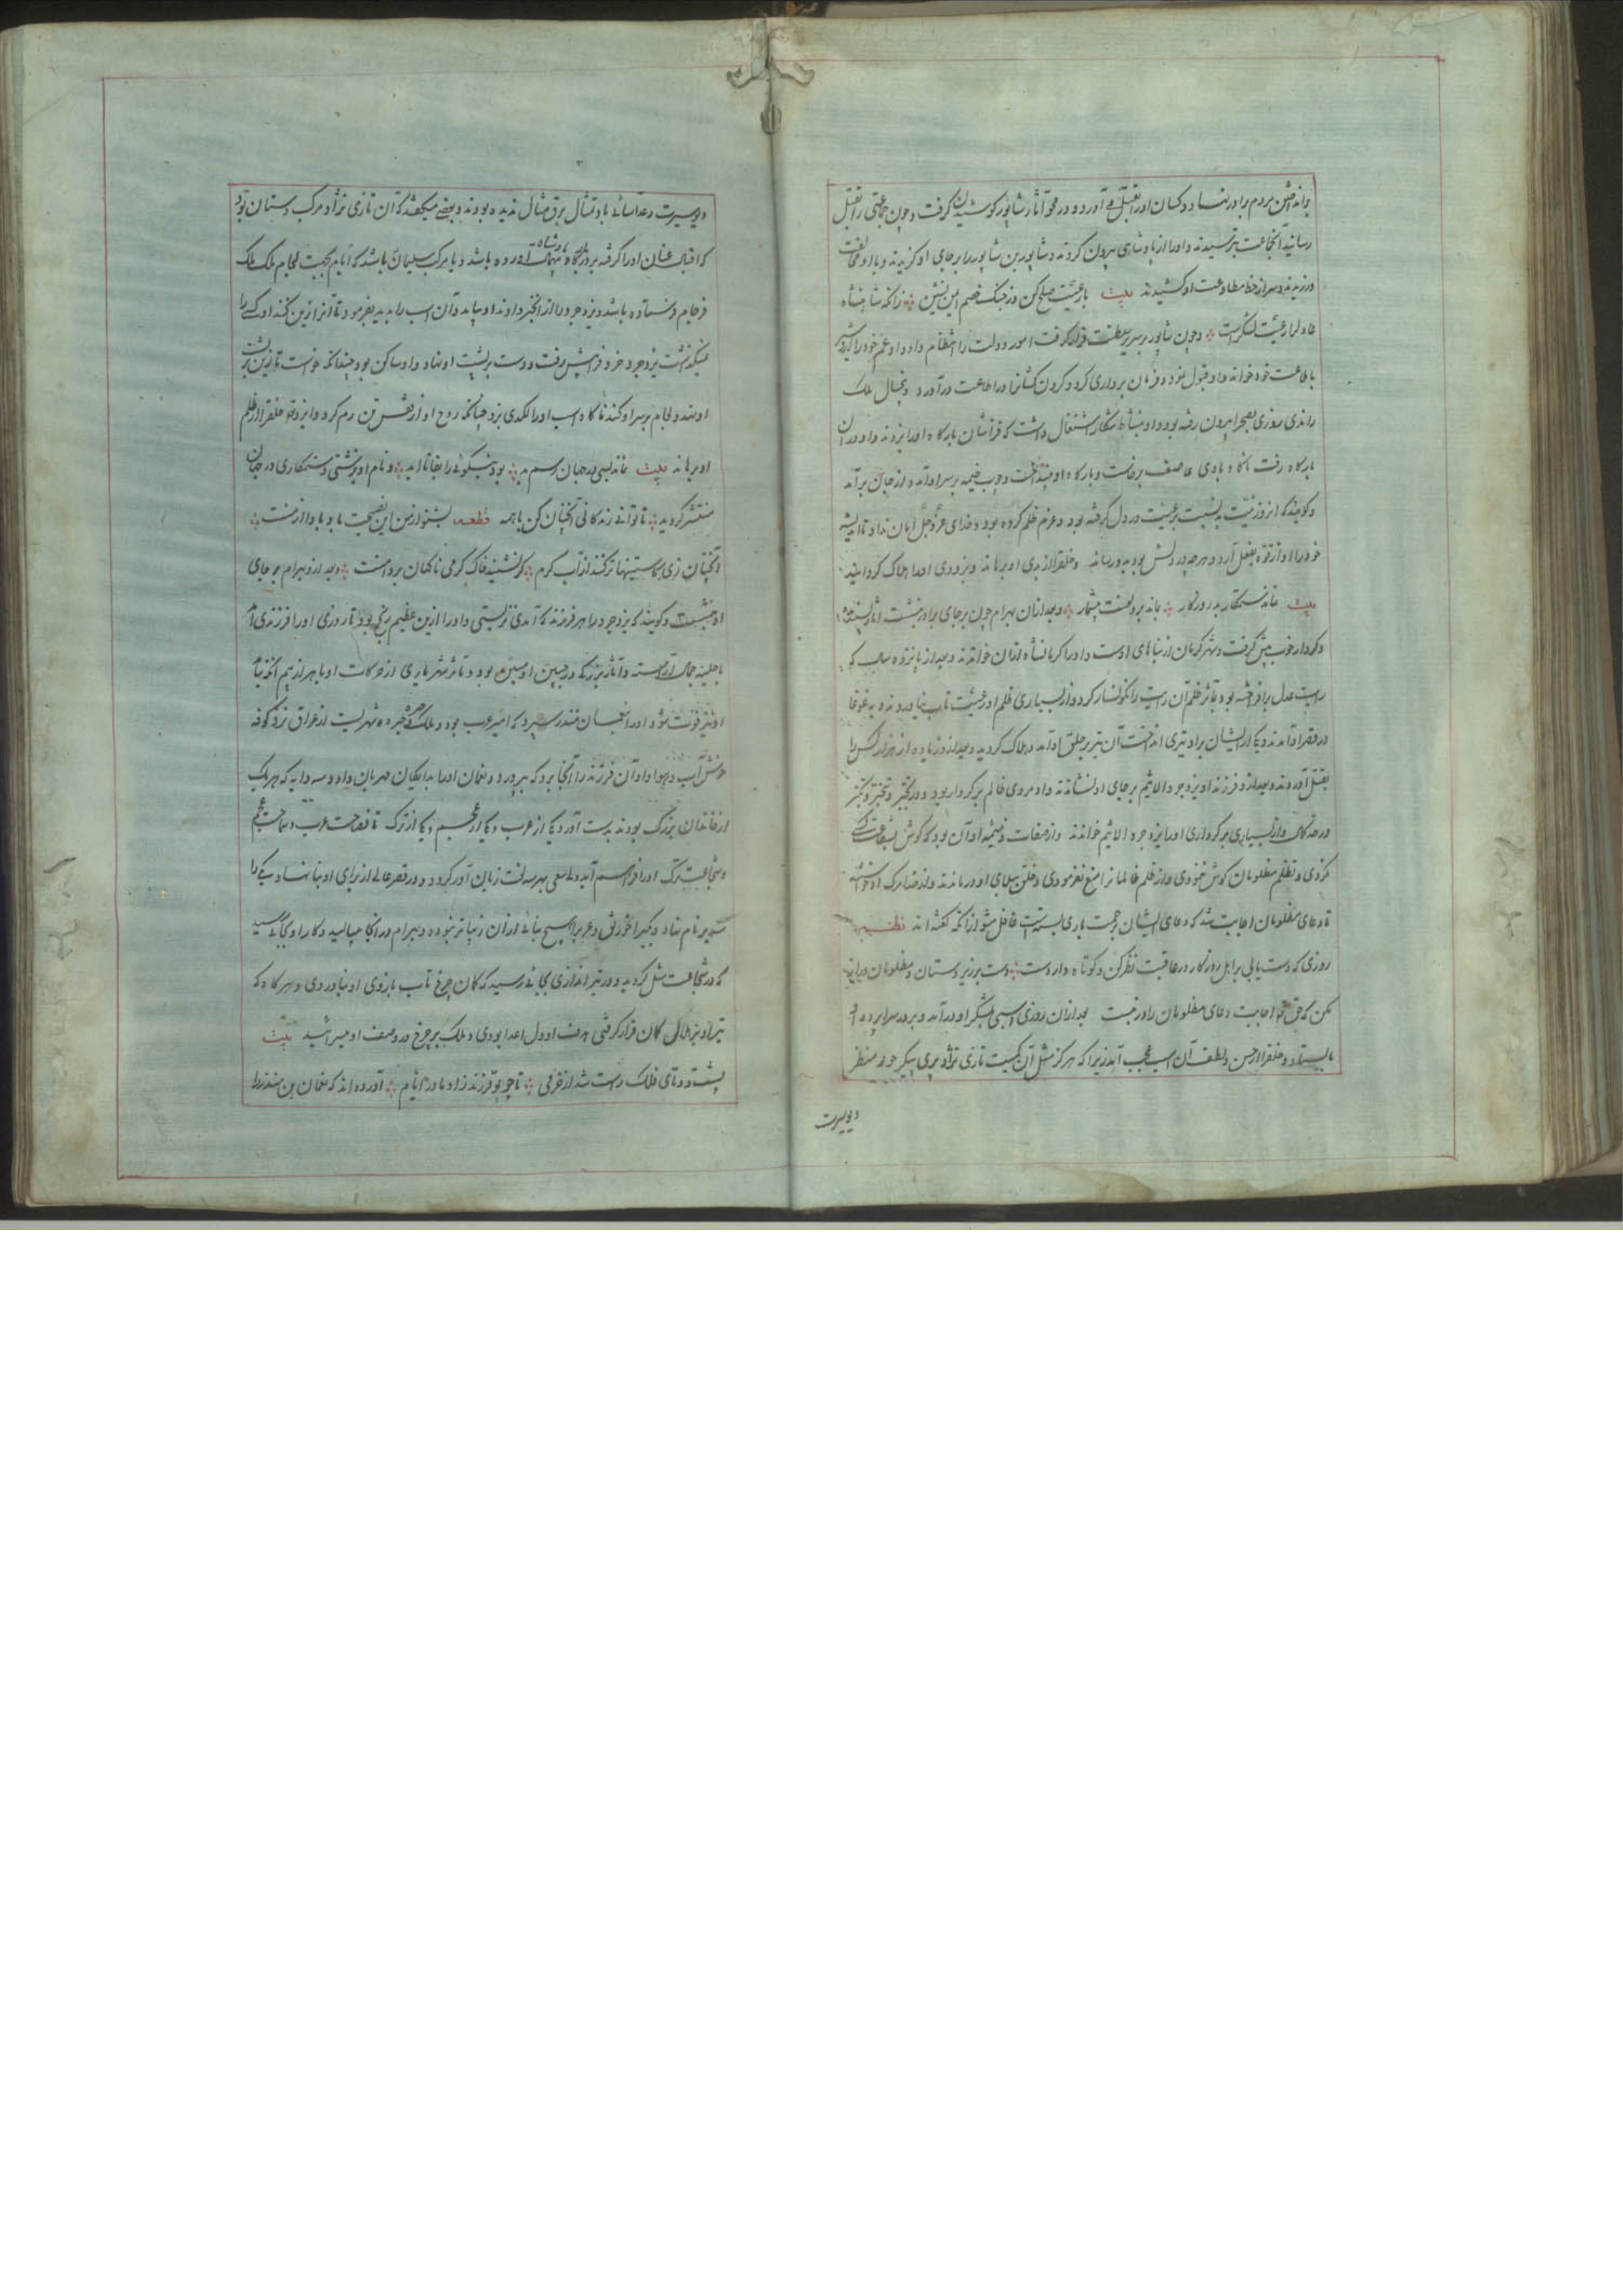 رسانید آنجماعت بترسیدند و او را از پادشاهی بیرون کردند و شاپور بن شاپور را بر جای او گزیدند و با او مخالفت
ورزیدند و سر از خط مطاوعت او کشیدند بیت با رعیت صلح کن وز جنگ خصم ایمن نشین زانکه شاهنشاه
عادل را رعیت لشکرست و چون شاپور بر سریر سلطنت قرار گرفت امور دولت را انتظام داد و عم خود را اردشیر
باطاعت خود خواند و او قبول نمود و فرمان برداری کرد و گردن کشانرا در اطاعت درآورد
روزی بصحرا بیرون رفته بود و او بنشاط شکار اشتغال داشت که فراشان بارگاه او را بزدند و او در آن
بارگاه رفت ناگاه بادی عاصف برخاست و بارگاه او بینداخت و چوب خیمه بر سر او آمد و از جهان برآمد
و گویند که آنروز نیت بنسبت رعیت در دل گرفته بود و عزم ظلم کرده بود و خدای عز و جل امان نداد تا اندیشه
خود را او از قوه بفعل آرد و هرچه در دلش بود بدو رساند و خلق را از بدی او برهاند و بزودی او را هلاک گردانید
بیت نماند ستمکار بد روزگار بماند برو لعنت بیشمار و بعد از آن بهرام چون بر جای برادر بنشست آثار پسندیده
و کردار خوب پیش گرفت و شهر کرمان از بناهای اوست و او را کرمانشاه از آن خواندند و بعد از پانزده سال که
رایت عدل برافراخته بود بتأثیر ظلم آن رایت را نگونسار کرد و از بسیاری ظلم او رعیت تاب نیاوردند و بغوغا
در قصر او آمدند و یکی از ایشان برو تیری انداخت آن تیر بر حلق او آمد و هلاک گردید و بعد از و زیاده از هزار کس را
بقتل آوردند و بعد از و فرزند او یزدجرد الاثیم بر جای او نشاندند و او مردی ظالم بد کردار بود و در تکبر و تجبر
در حد کمال و از بسیاری بد کرداری او را یزدجرد الاثیم خواندند و از صفات ذمیمه او آن بود که گوش بشفاعت کس
نکردی و تظلم مظلومان گوش ننمودی و از ظلم ظالمانرا منع نفرمودی و خلق ببلای او درماندند و از خدا مرگ او خواستند
تا دعای مظلومان اجابت شد که دعای ایشان برحمت باری بسته است غافل مشو از آنکه گفته اند قطعه
روزی که دست یابی بر اهل روزگار در عاقبت نظر کن و کوتاه دار دست دست بر زیر دستان و مظلومان دراز
مکن که حق را اجابت دعای مظلومان را در نیست بعد از آن روزی اسبی بلشکر او درآمد و بر در سراپرده او
بایستاد و خلق را از حسن و لطف آن اسب عجب آمد زیرا که هرگز مثل آن کمیت تازی نژاد پری پیکر حور منظر
دیو سیرت
دیو سیرت رعد آسای باد تمثال برق مثال ندیده بودند و بعضی میگفتند که آن تازی نژاد مرکب دستان بود
که اقبال عنان او را گرفته بر درگاه پادشاه آورده باشد و یا مرکب سلیمان باشد که ایام بجهت لجام ملک
فرجام فرستاده باشد و یزدجرد را از آن خبر دادند او بیامد و آن اسب را بدید بفرمود تا آنرا زین کنند او کسی را
نمیگذاشت یزدجرد خود فرا پیش رفت و دست بر پشت او نهاد و او ساکن بود چندانکه خواست تا زین بر پشت
او بندد و لجام بر سر او کند ناگاه اسب او را لگدی بزد چنانکه روح او از قفس تن رم کرد و ایزد تعالی خلق را از ظلم
او برهاند بیت نماند بسی در جهان رسم بد بود نیکوئی را بقا تا ابد و نام او بزشتی و ستمکاری در جهان
منتشر گردید تا توانی زندگانی آنچنان کن با همه قطعه بشنو از من این نصیحت باد بادا از منت
آنچنان زی کاستینها تر کنند از آب گرم گر نشیند خاک گرمی ناگهان بر دامنت و بعد از و بهرام بر جای
او بنشست و گویند که یزدجرد را هر فرزند که آمدی نزیستی و او را از این عظیم رنجی بود تا روزی او را فرزندی آمد
بحلیه جمال آراسته و آثار بزرگی در جبین او مبین بود و تأثر شهریاری از حرکات او باهر از بیم آنکه مبادا
او نیز فوت شود او را بنعمان منذر سپرد که امیر عرب بود و ملک حیره و حیره شهریست از عراق نزد کوفه
خوش آب و هوا و او آن فرزند را آنجا برد که بپرورد و نعمان او را بدایگان مهربان داد و سه دایه که هر یک
از خاندان بزرگ بودند بدست آورد یکی از عرب و یکی از عجم و یکی از ترک تا فصاحت عرب و سماحت عجم
و شجاعت ترک او را فراهم آید و بهر سه لغت زبان آور گردد و قصر عالی از برای او بنا نهاد و یکی را
سدیر نام نهاد و دیگر را خورنق و عرب را هیچ بنائی از آن زیباتر نبوده و بهرام در آنجا میبالید و کار او بجائی رسید
که در شجاعت مثل گردید و در تیراندازی بجائی رسید که کمان چرخ تاب بازوی او نیاوردی و هر گاه که
تیر او بر هلال کمان قرار گرفتی هدف او دل اعدا بودی و ملک بر چرخ در وصف او میسرائید بیت
پشت دوتای فلک راست شد از خرمی تا چو تو فرزند زاد مادر ایام آورده اند که نعمان بن منذر را